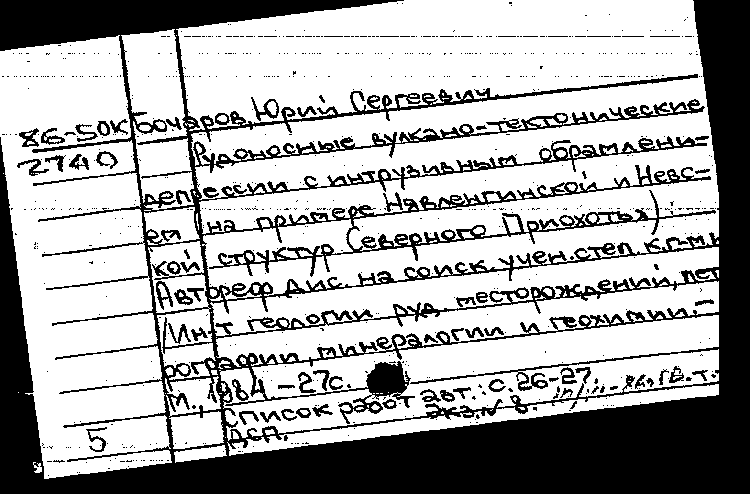 86-50К Бочаров, Юрий Сергеевич.
2740 Рудоносные вулкано-тектонические
депрессии с интрузивным обрамлени-
ем (на примере Нявленгинской и Невс-
кой структур Северного Приохотья):
Автореф. дис. на соиск. учен. степ. к.г-м.н
/Ин-т геологии руд. месторождений, пет
рографии, минералогии и геохимии.-
М., 1984.-27с.
Список работ авт.: с. 26-27.
ДСП. экз. № 8.
5